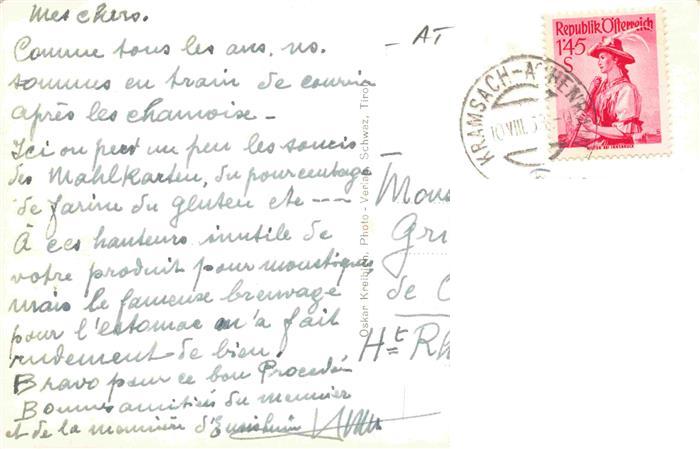 Mes chers.
Comme tous les ans, ns.
sommes en train de courir
après les chamoise -
Ici on perd un peu les soucis
des Mahlkarten, du pourcentage
de farine du gluten etc ---
À ces hauteurs inutile de
votre produit pour moustiques
mais le fameuse breuvage
pour l'estomac m'a fait
rudement de bien.
Bravo pour ce bon Procédé
Bonnes amitiés du meunier
et de la meunière d'
- AT
Republik Österreich
1'45
S
KRAMSACH-ACHENRAIN
10.VIII.
Oskar Kreibich, Photo - Verlag Schwaz, Tirol
Mons
Gri
de C
Ht Rh